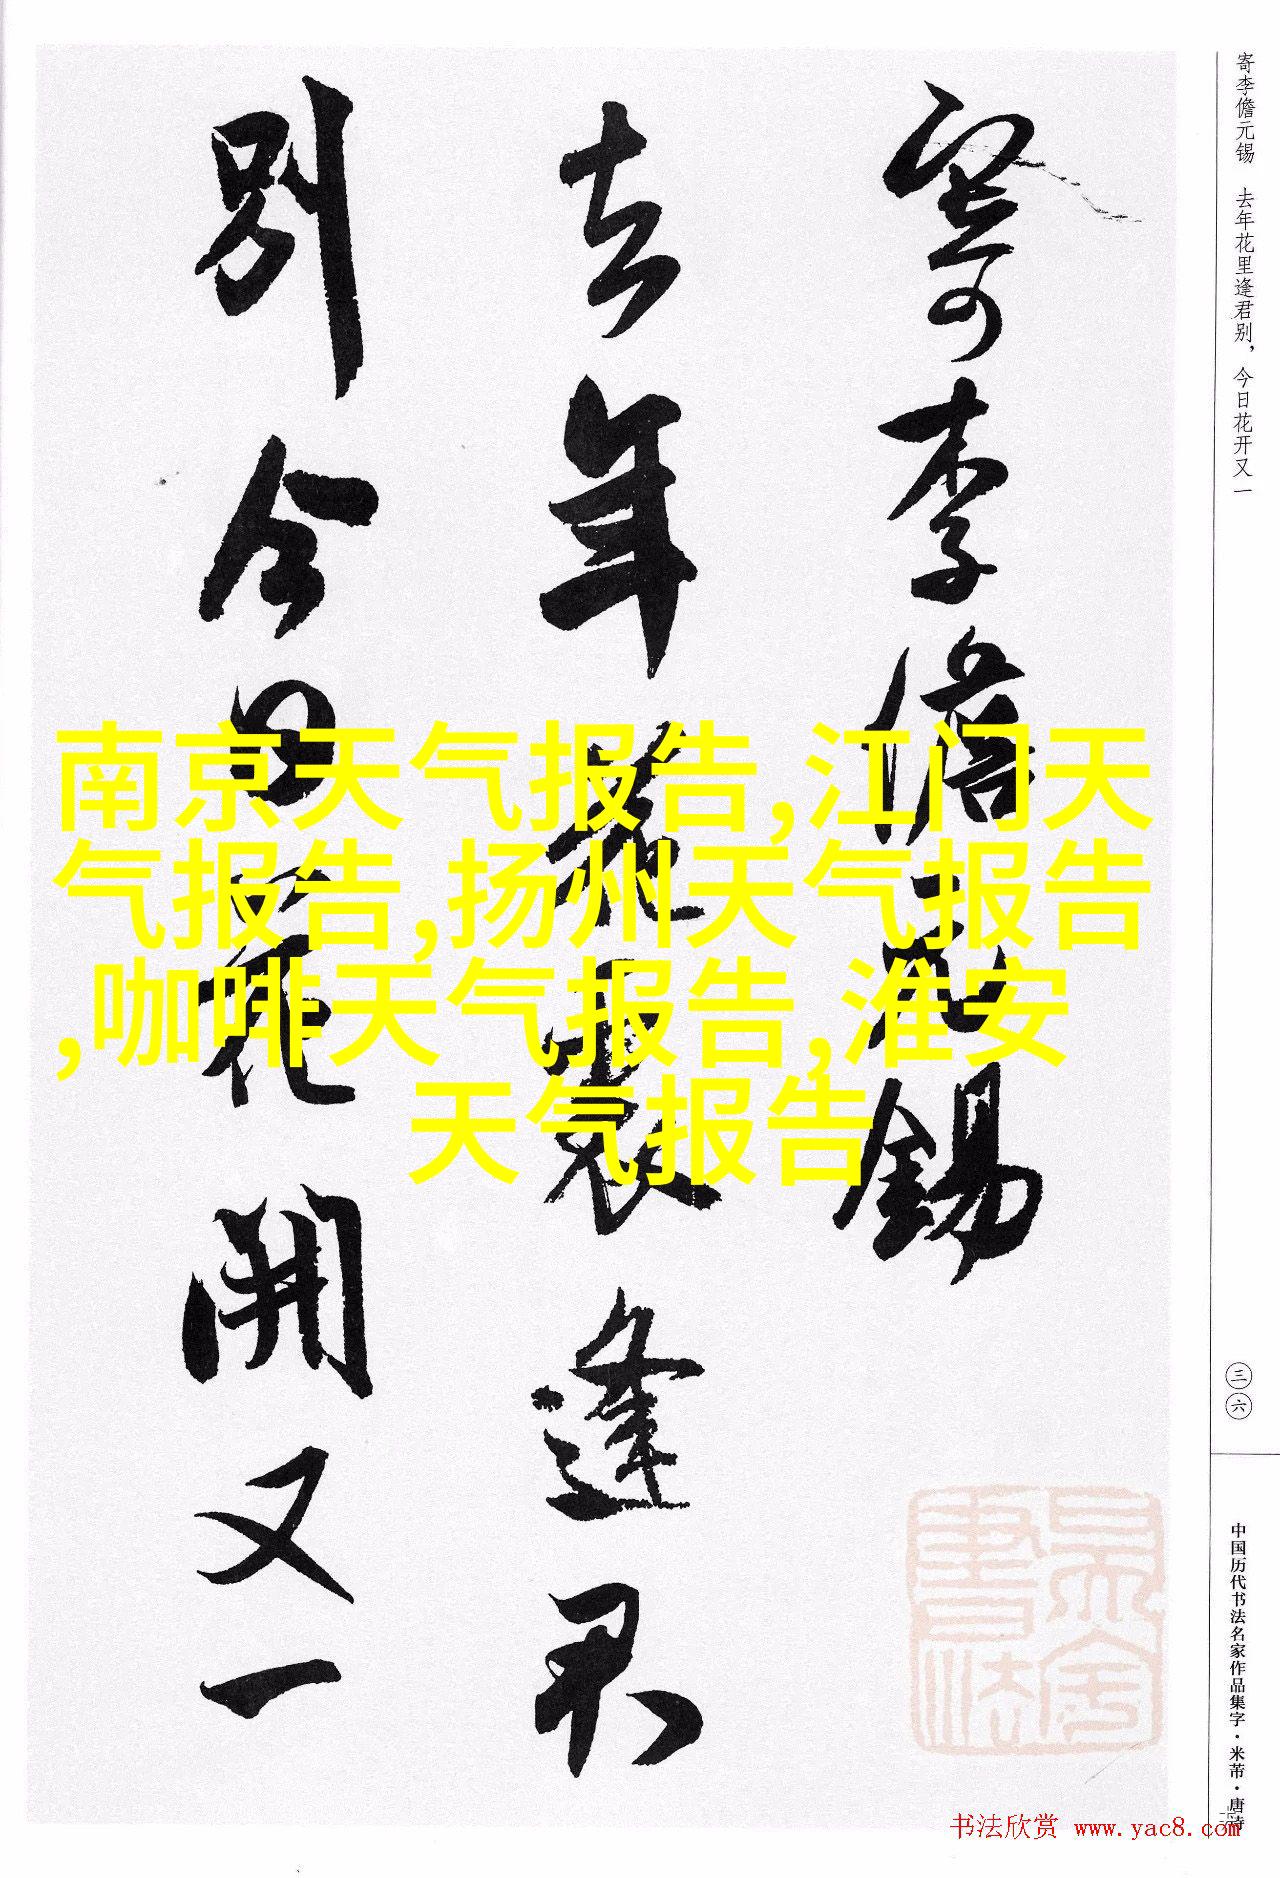 寄李儋元锡　去年花里逢君别，今日花开又一
寄李儋元錫
去年花裏逢君
别今日花開又一
南京天气报告,江门天
气报告,扬州天气报告
,咖啡天气报告,淮安
天气报告
三六
中国历代书法名家作品集字·米芾·唐诗
书法欣赏 www.yac8.com